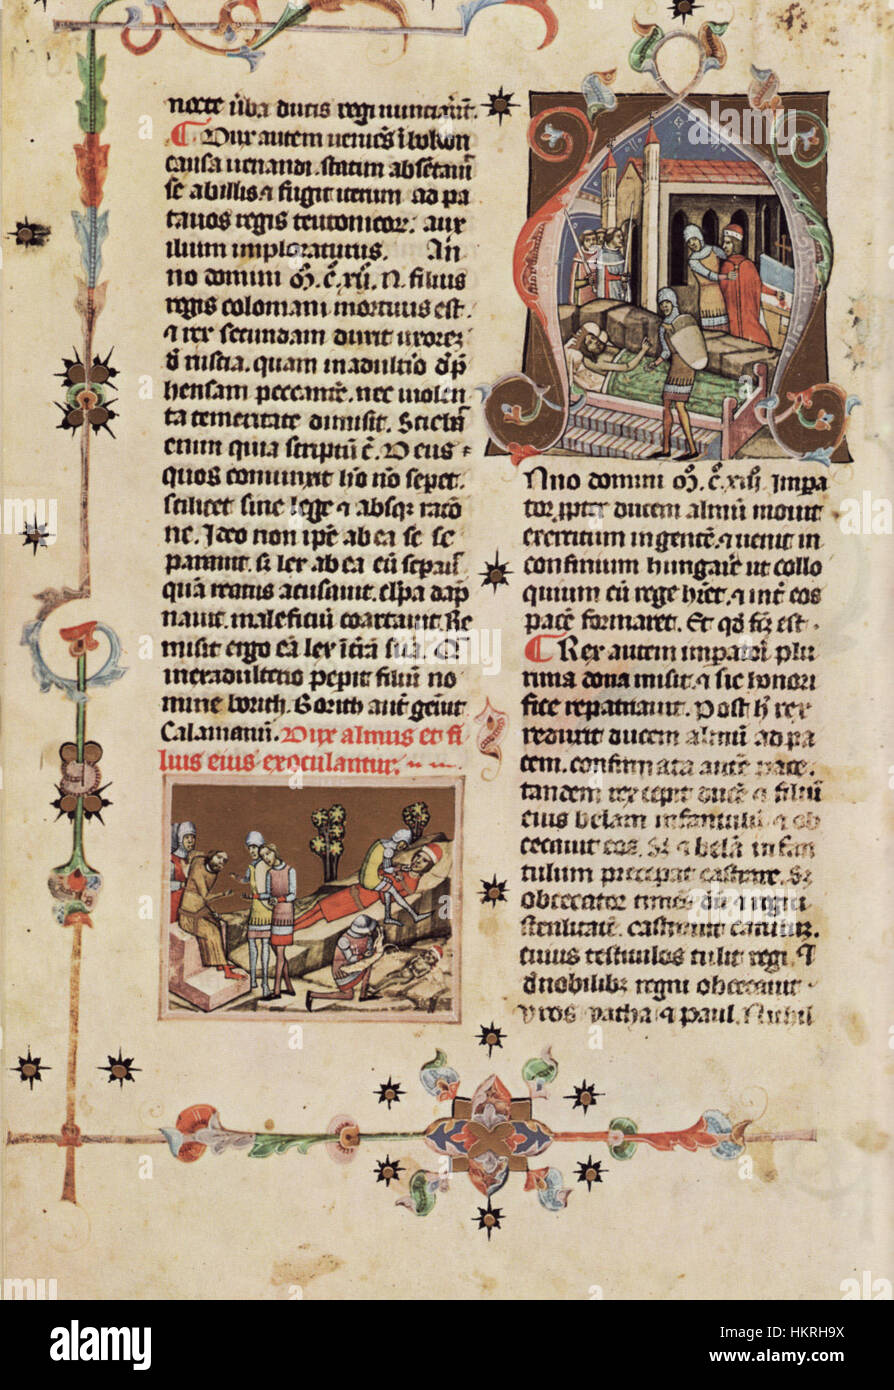 nocte uerba ducis regi nunciauit.
Dux autem ueniens i bokon
causa uenandi. statim absetauit
se ab illis ⁊ fugit iterum ad pa
tauos regis teutonicor. aux
ilium imploraturus. An
no domini M. C. XII. N. filius
regis colomani mortuus est.
⁊ rex secundam duxit uxorez
d ruscia. quam in adultio dep
hensam peccante. nec uiolen
ta temeritate dimisit. Sciebat
enim quia scriptu e. Deus
quos coniunxit ho no sepet.
scilicet sine lege ⁊ absqz racio
ne. Ideo non ipe ab ea se se
parauit. sz lex ab ea eu sepauit
qua reatus acusauit. culpa dap
nauit. maleficiu coartauit. Re
misit ergo ea lex i tra sua. Q
in eradulterio pepit filiu no
mine borith. Borith aut genuit
Calamanu. Dux almus et fi
lius eius exoculantur.
Nno domini M. C. XIII. Impa
tor. ppter ducem almu mouit
exercitum ingente. ⁊ uenit in
confinium hungarie ut collo
quium cu rege heret. ⁊ int eos
pace formaret. Et qd fcz est.
Rex autem imperatori plu
rima dona misit. ⁊ sic honori
fice repatriauit. Post h rex
reduxit ducem almu ad pa
cem. confirmata aute pace.
tandem rex cepit duce ⁊ filiu
eius belam infantulu ⁊ ob
cecauit eos. Sz ⁊ bela infan
tulum precepat castrare. Sz
obcecator times deu ⁊ regni
sterilitate. castrauit catulu.
cuius testiculos tulit regi.
d nobilibz regni obcecauit
uros vatha ⁊ paul. Nichil
alamy
Image ID: HKRH9X
www.alamy.com